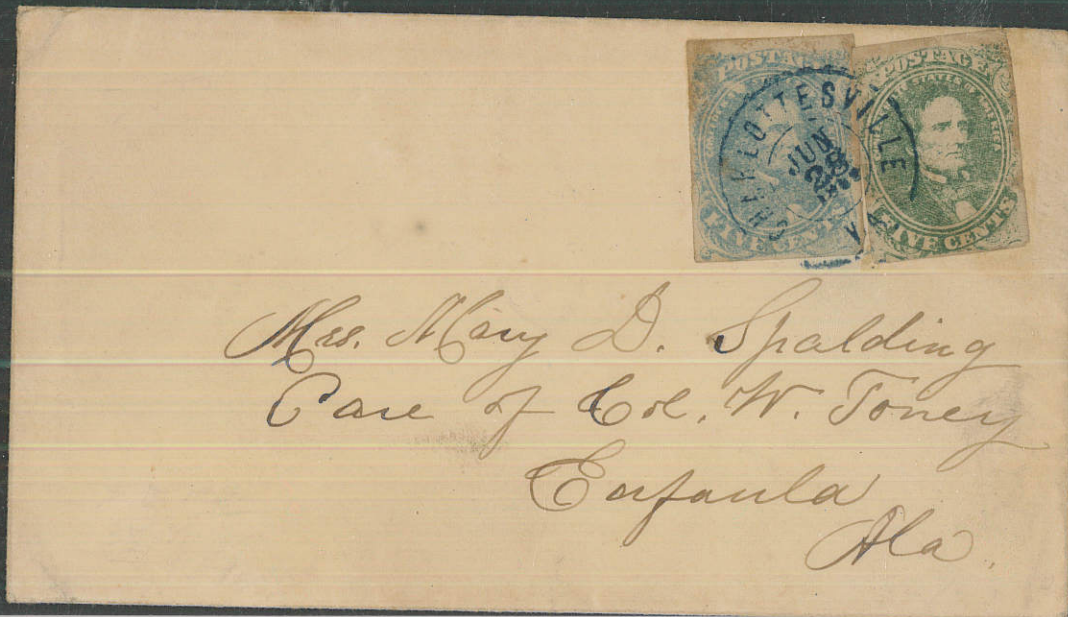 POSTAGE
POSTAGE
CHARLOTTESVILLE
JUN
28
FIVE CENTS
FIVE CENTS
Mrs. Mary D. Spalding
Care of Col. W. Toney
Eufaula
Ala.